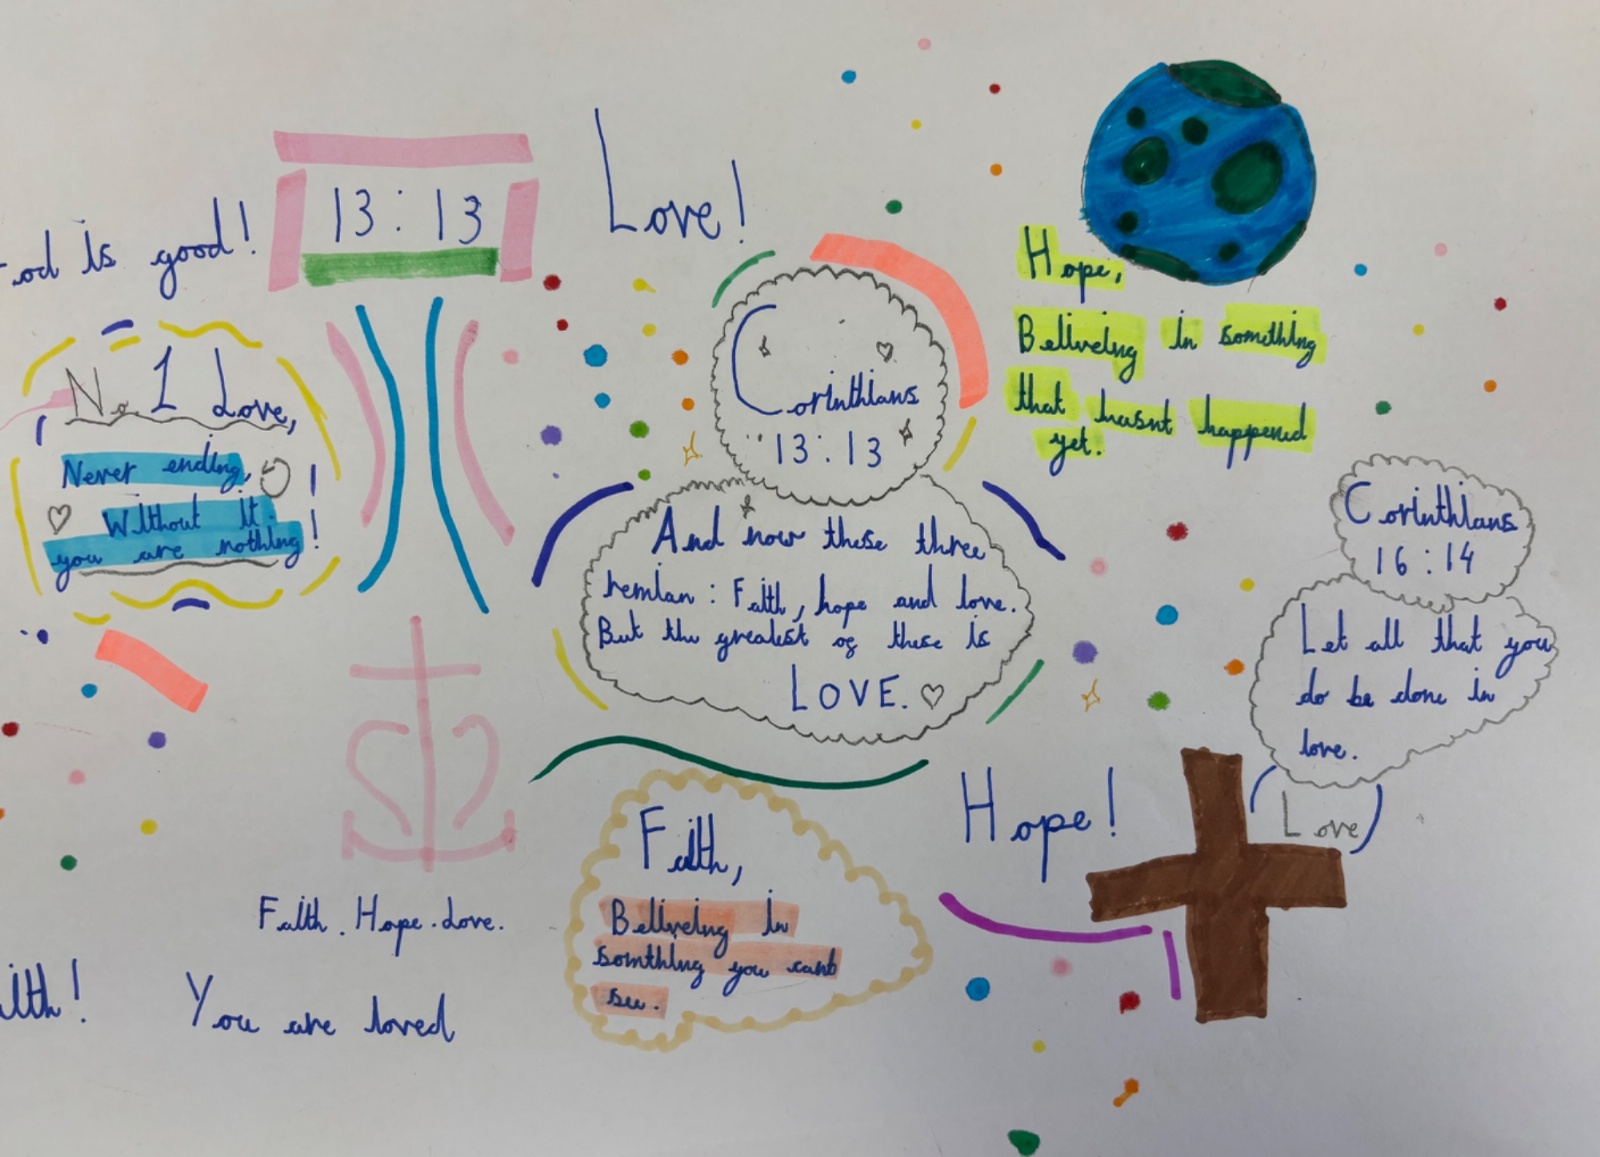 od is good!
13:13
Love!
No 1 Love,
Never ending,
Without it
you are nothing!
!
Corinthians
13:13
And now these three
remian: Faith, hope and love.
But the greatest of these is
LOVE.
Hope,
Beliveing in something
that hasnt happened
yet.
Corinthians
16:14
Let all that you
do be done in
love.
Love
Hope!
Faith,
Beliveing in
somthing you cant
see.
Faith. Hope. Love.
ith!
You are loved